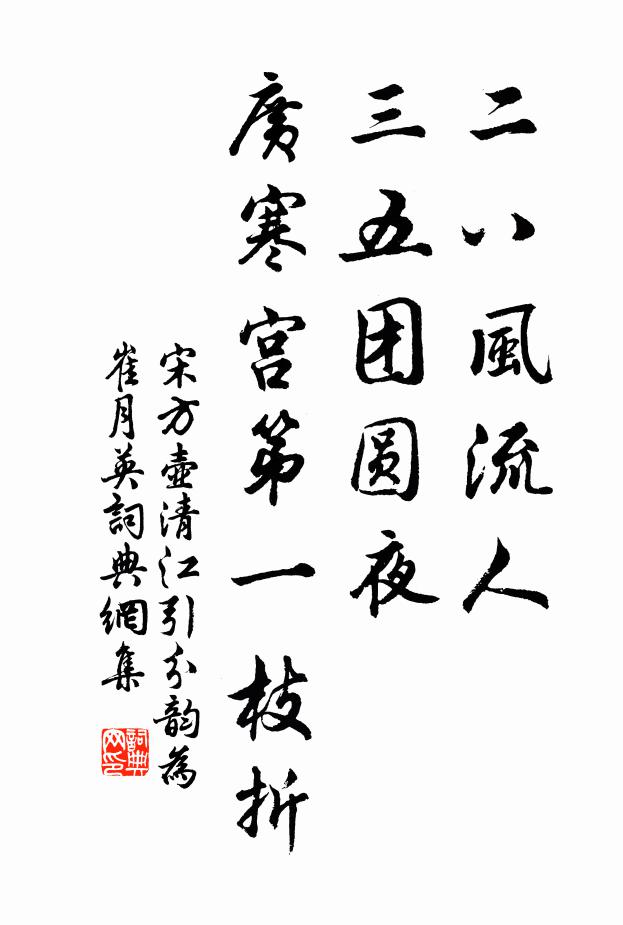 二八風流人
三五团圆夜
廣寒宫第一枝折
宋方壺清江引分韵為
崔月英詞典網集
詞典
网印